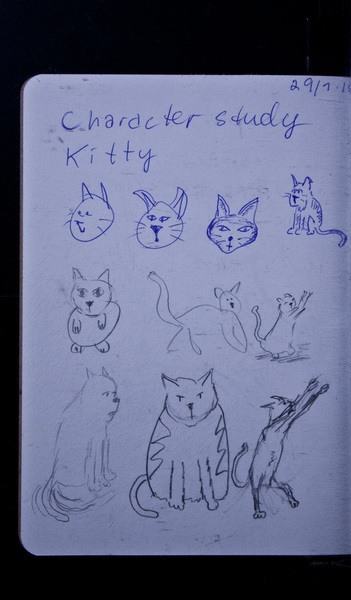 29/1.
Character study
Kitty